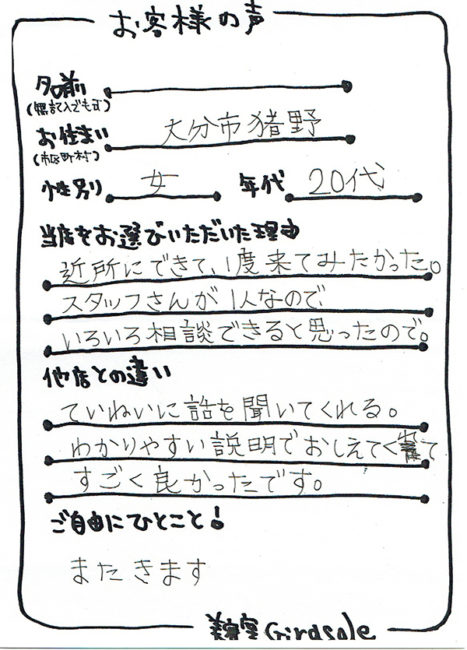 お客様の声
名前
(無記入でも可)
お住まい 大分市猪野
(市区町村)
性別 女 年代 20代
当店をお選びいただいた理由
近所にできて、1度来てみたかった。
スタッフさんが1人なので
いろいろ相談できると思ったので。
他店との違い
ていねいに話を聞いてくれる。
わかりやすい説明でおしえてくれて
すごく良かったです。
ご自由にひとこと!
またきます
美容室